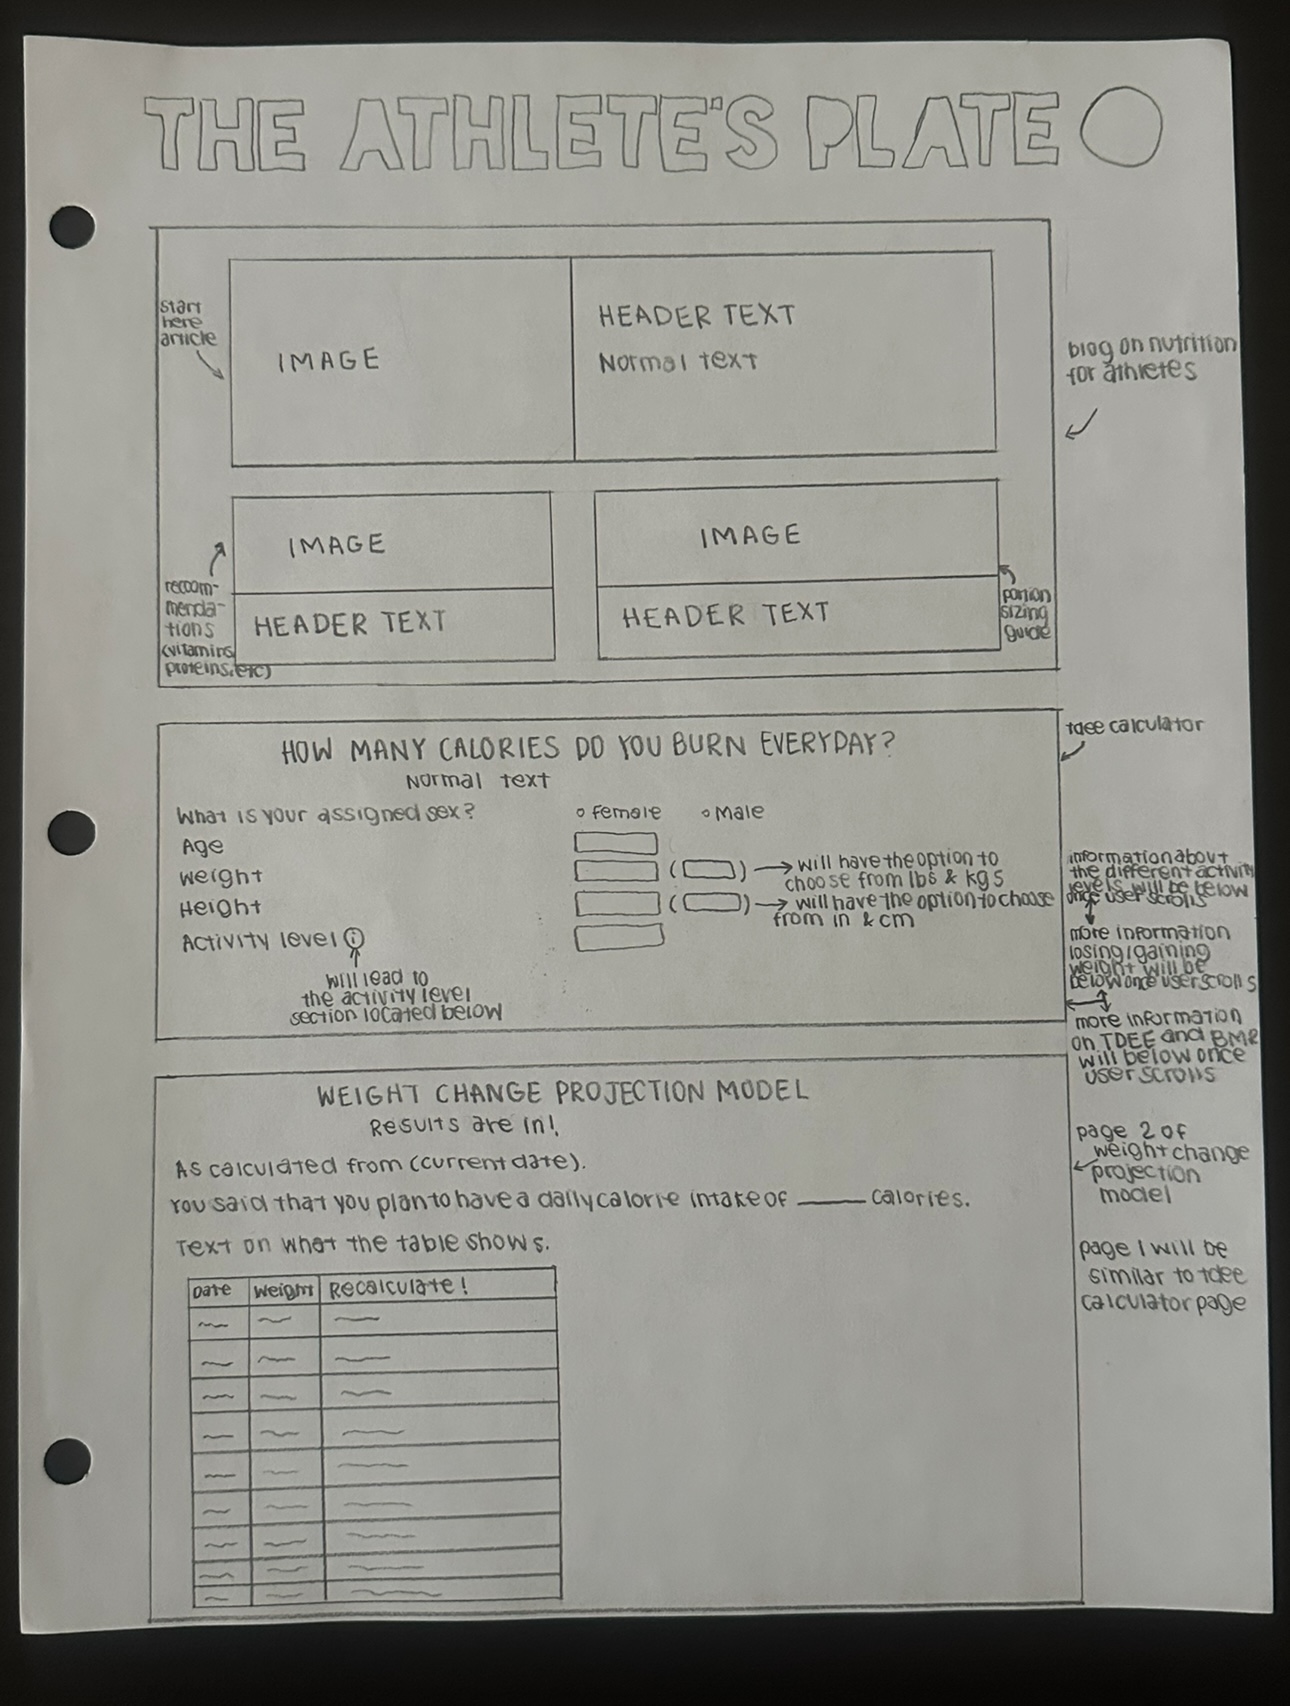 THE ATHLETE'S PLATE
start
here
article
IMAGE
HEADER TEXT
Normal text
blog on nutrition
for athletes
IMAGE
HEADER TEXT
IMAGE
HEADER TEXT
recom-
menda-
tions
(vitamins
proteins, etc)
portion
sizing
guide
tdee calculator
HOW MANY CALORIES DO YOU BURN EVERYDAY?
Normal text
What is your assigned sex?
Female
Male
Age
Weight
( )
will have the option to
choose from lbs & kgs
Height
( )
will have the option to choose
from in & cm
Activity level i
will lead to
the activity level
section located below
information about
the different activity
levels will be below
once user scrolls
more information
losing/gaining
weight will be
below once user scrolls
more information
on TDEE and BMR
will below once
user scrolls
WEIGHT CHANGE PROJECTION MODEL
Results are in!
As calculated from (current date).
You said that you plan to have a daily calorie intake of ____ calories.
Text on what the table shows.
Date Weight Recalculate!
page 2 of
weight change
projection
model
page 1 will be
similar to tdee
calculator page